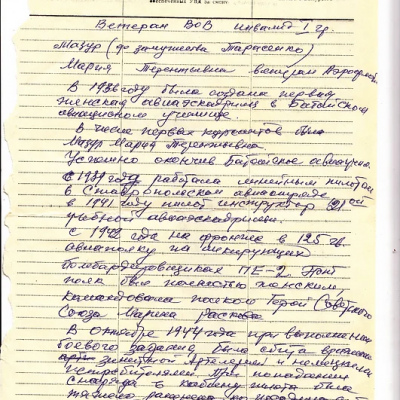 Ветеран ВОВ инвалид I гр.
Мазур (до замужества Тарасенко)
Мария Терентьевна ветеран Аэрофлота
В 1936 году была создана первая
женская авиаэскадрилья в Батайском
авиационном училище.
В числе первых курсантов была
Мазур Мария Терентьевна
Успешно окончив Батайское авиаучил.
с 1939 году работала линейным пилотом
в Ставропольском авиаотряде
в 1941 году пилот инструктор
учебной авиаэскадрильи.
с 1942 года на фронте в 125 гв.
авиаполку на пикирующих
бомбардировщиках ПЕ-2 Этот
полк был полностью женским,
командовала полком Герой Советского
Союза Марина Раскова
В Октябре 1944 года при выполнении
боевого задания была сбита
зенитной Артелерией и немецкими
Истребителями При попадании
Снаряда в кабину пилота была
тяжело ранена